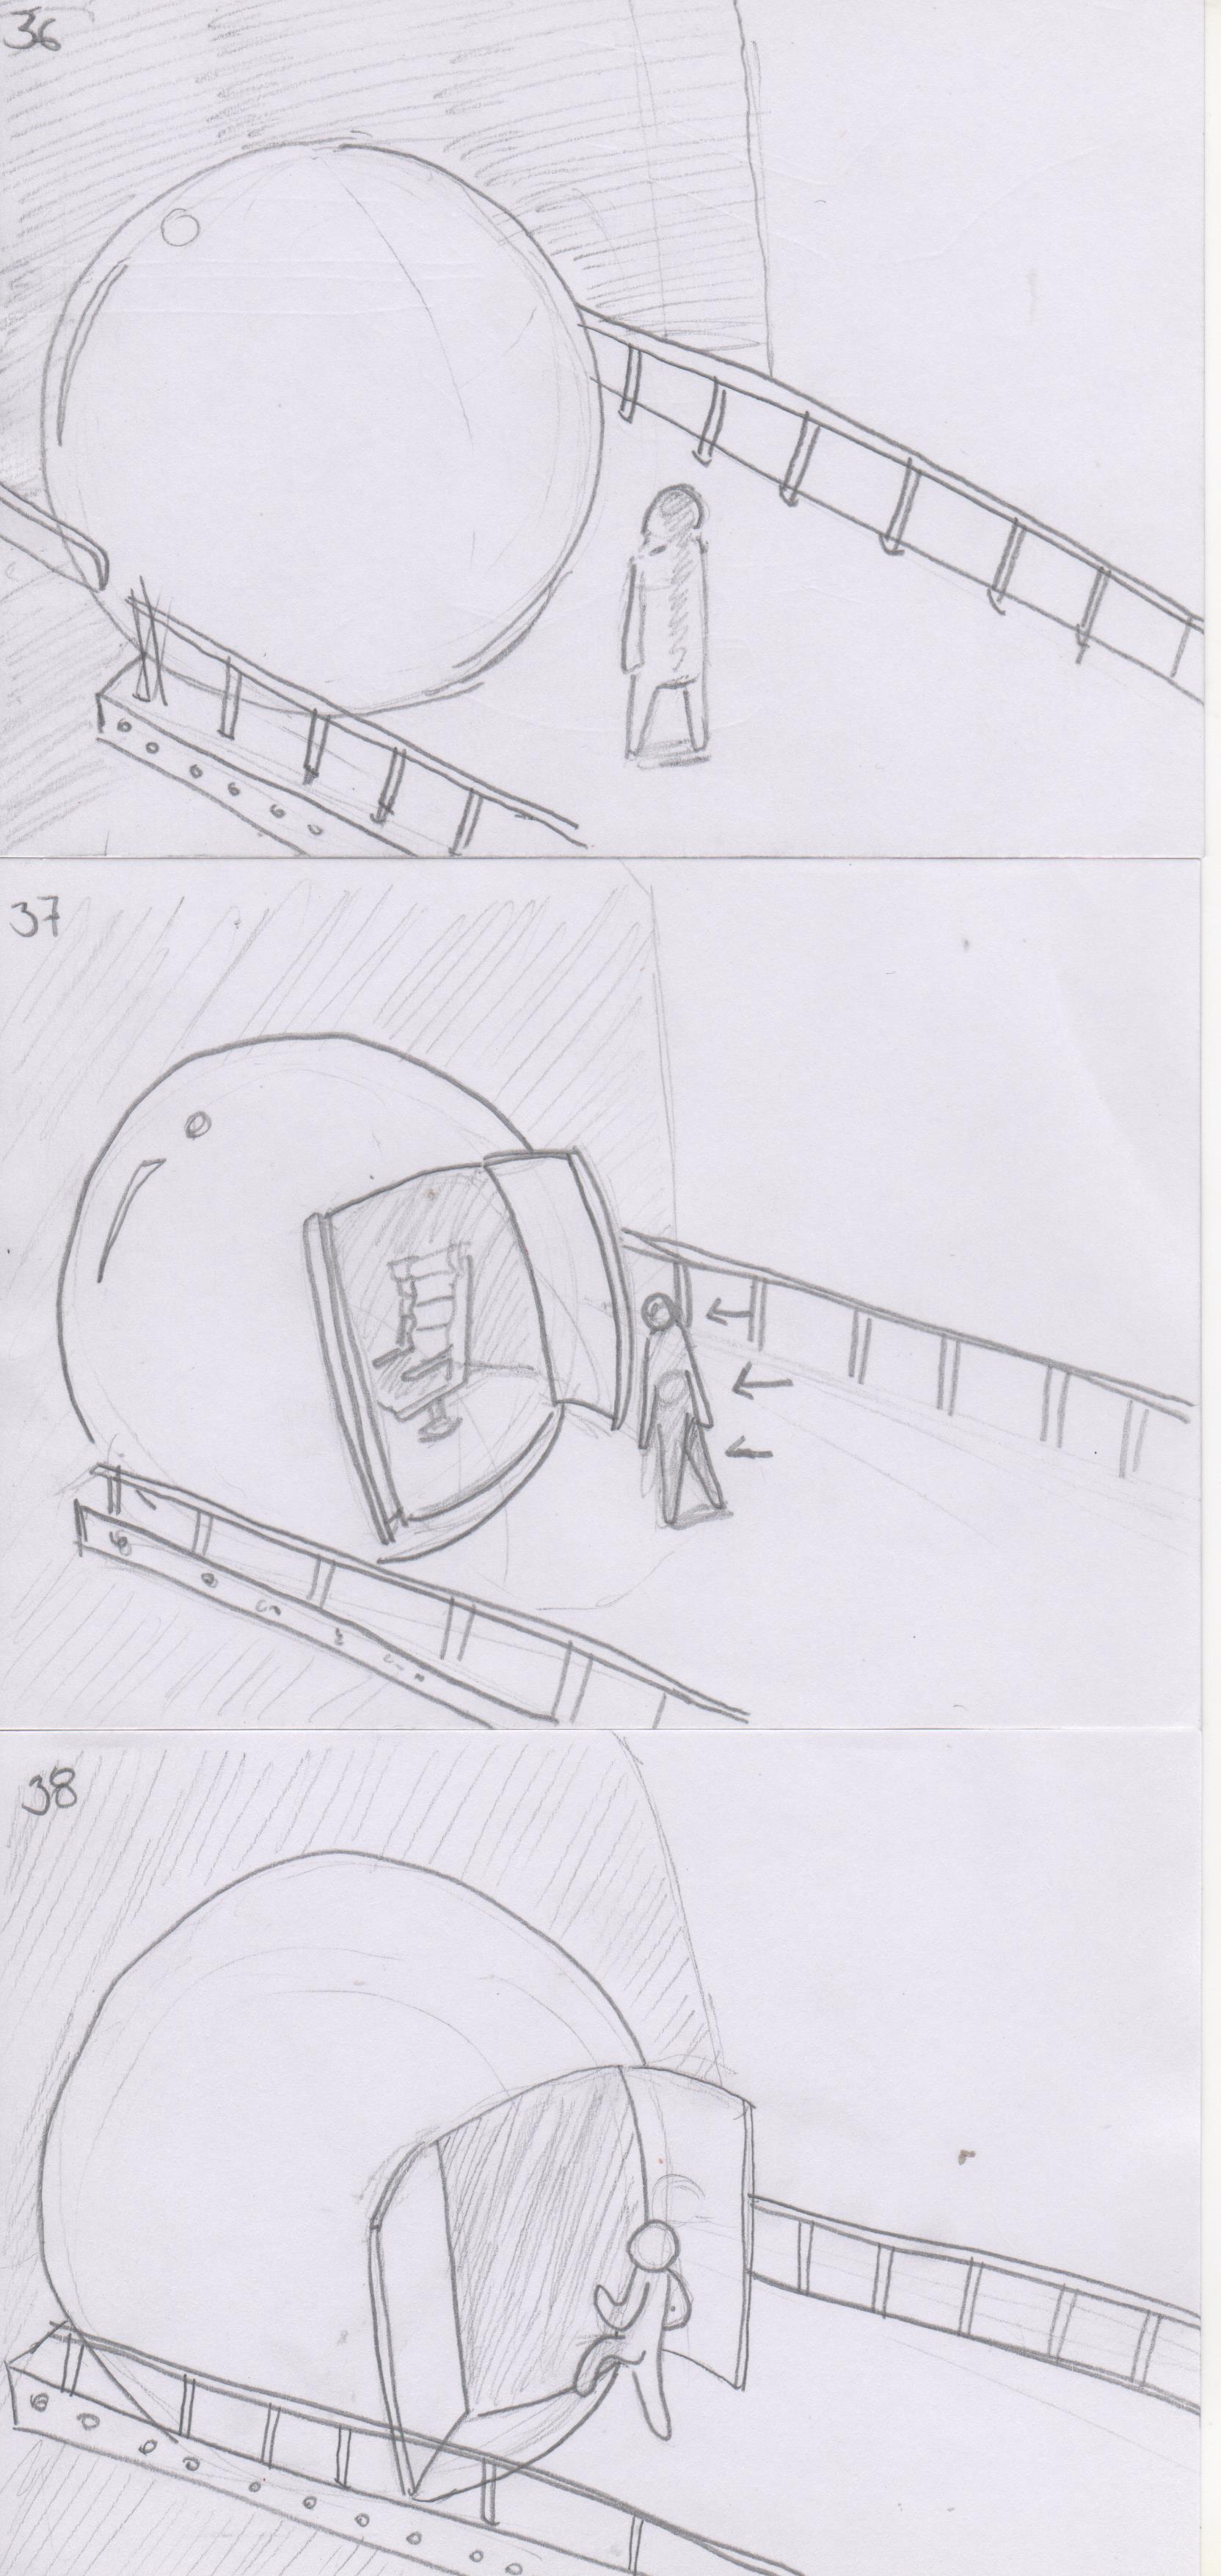 36
37
38